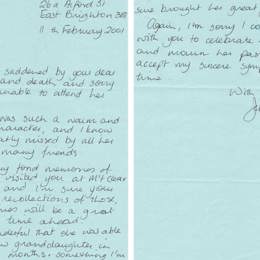 26a Alford St
East Brighton 318
11th February 2001
saddened by your dear
and death, and sorry
unable to attend her
was such a warm and
character, and I know
missed by all her
many friends
fond memories of
visited you at Mt Clear
and I'm sure your
recollections of those
will be a great
time ahead
that she was able
granddaughter in
months - something I'm
sure brought her great
Again, I'm sorry I co
with you to celebrate
and mourn her pas
accept my sincere sym
time
With